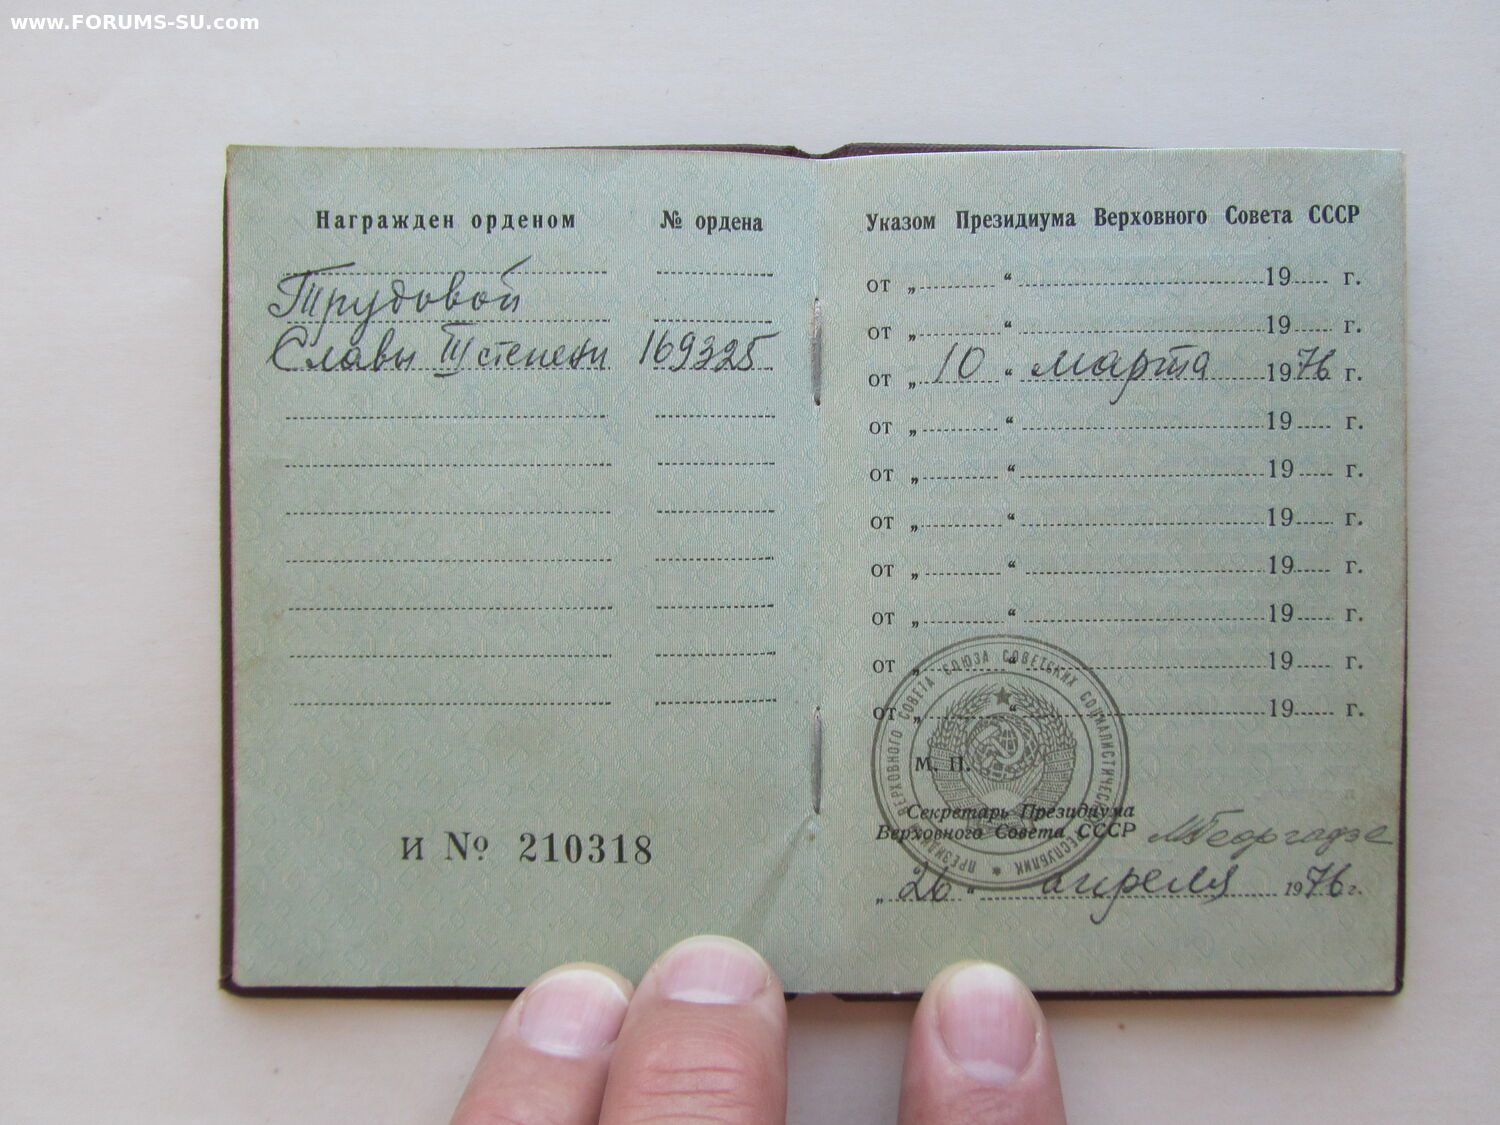 www.FORUMS-SU.com
Награжден орденом
№ ордена
Трудовой
Славы III степени 169325
И № 210318
Указом Президиума Верховного Совета СССР
от „ “ 19 г.
от „ “ 19 г.
от „ 10 “ марта 1976 г.
от „ “ 19 г.
от „ “ 19 г.
от „ “ 19 г.
от „ “ 19 г.
от „ “ 19 г.
от „ “ 19 г.
от „ “ 19 г.
М. П.
Секретарь Президиума
Верховного Совета СССР МГеоргадзе
„ 26 “ апреля 1976 г.
ПРЕЗИДИУМ ВЕРХОВНОГО СОВЕТА СОЮЗА СОВЕТСКИХ СОЦИАЛИСТИЧЕСКИХ РЕСПУБЛИК